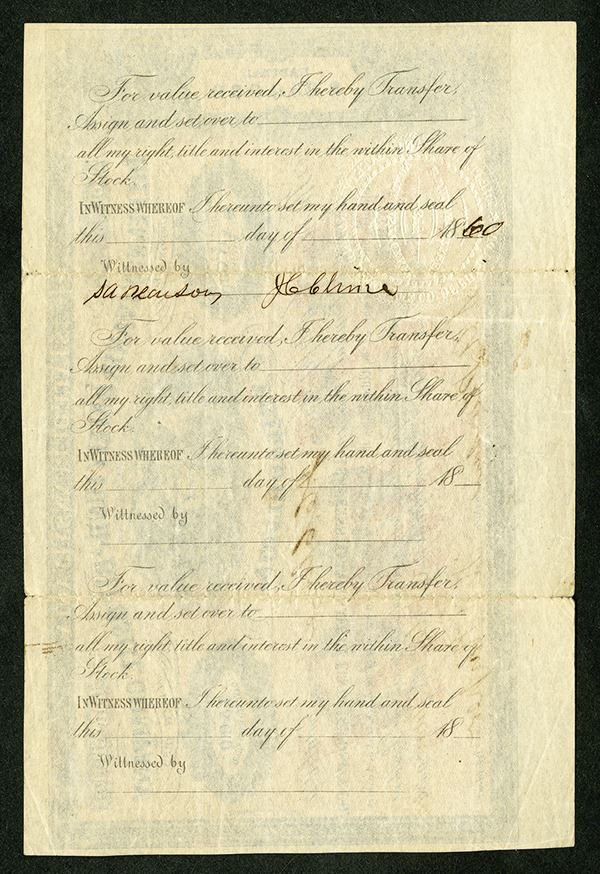 For value received, I hereby Transfer,
Assign and set over to
all my right, title and interest in the within Share of
Stock.
IN WITNESS WHEREOF I hereunto set my hand and seal
this day of 1860
Wittnessed by
For value received, I hereby Transfer,
Assign and set over to
all my right, title and interest in the within Share of
Stock.
IN WITNESS WHEREOF I hereunto set my hand and seal
this day of 18
Wittnessed by
For value received, I hereby Transfer,
Assign and set over to
all my right, title and interest in the within Share of
Stock.
IN WITNESS WHEREOF I hereunto set my hand and seal
this day of 18
Wittnessed by